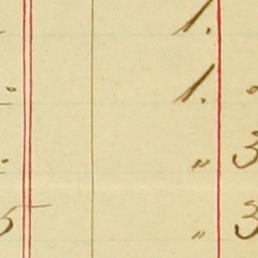 1.
1.
" 3
5 " 3